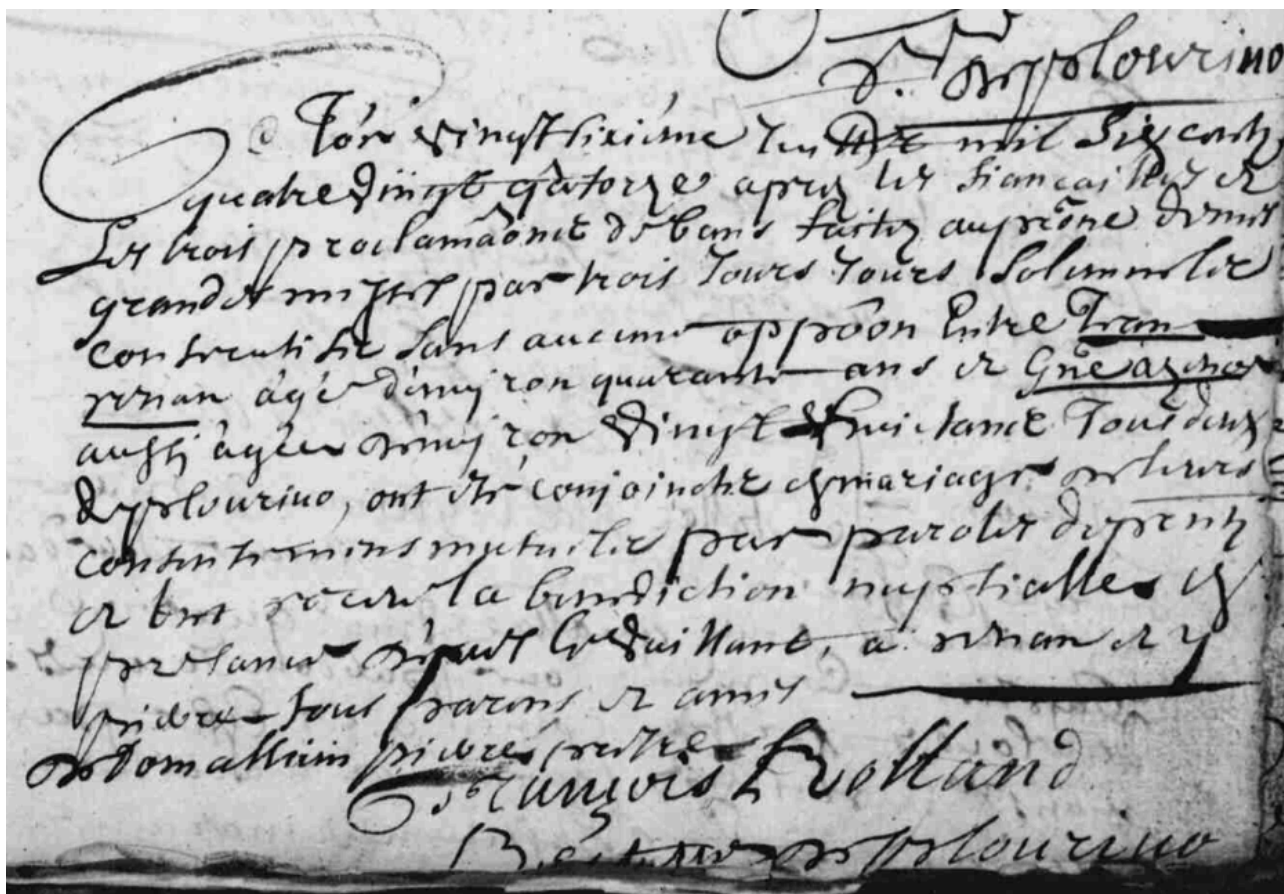 de plourivo
Ce Jour vingt sixieme Juillet mil Six centz
quatre vingt quatorze apres les fiançailles et
Les trois proclamaõns de bans faites auprône de nos
grandes messes par trois Jours Jours Solemnels
consecutifs sans aucune oppõon Entre
âgé d'environ quarante ans et
aussy agée d'environ vingt & huict ans Tous deux
de plourivo, ont eté conjoincts en mariage de leurs
consentemens mutuels par paroles de
et ont receu la benediction nuptialle en
presance Le Vaillant, a. et y
pierre tous parens et amis
pierre prestre
François Rolland
Recteur de plourivo